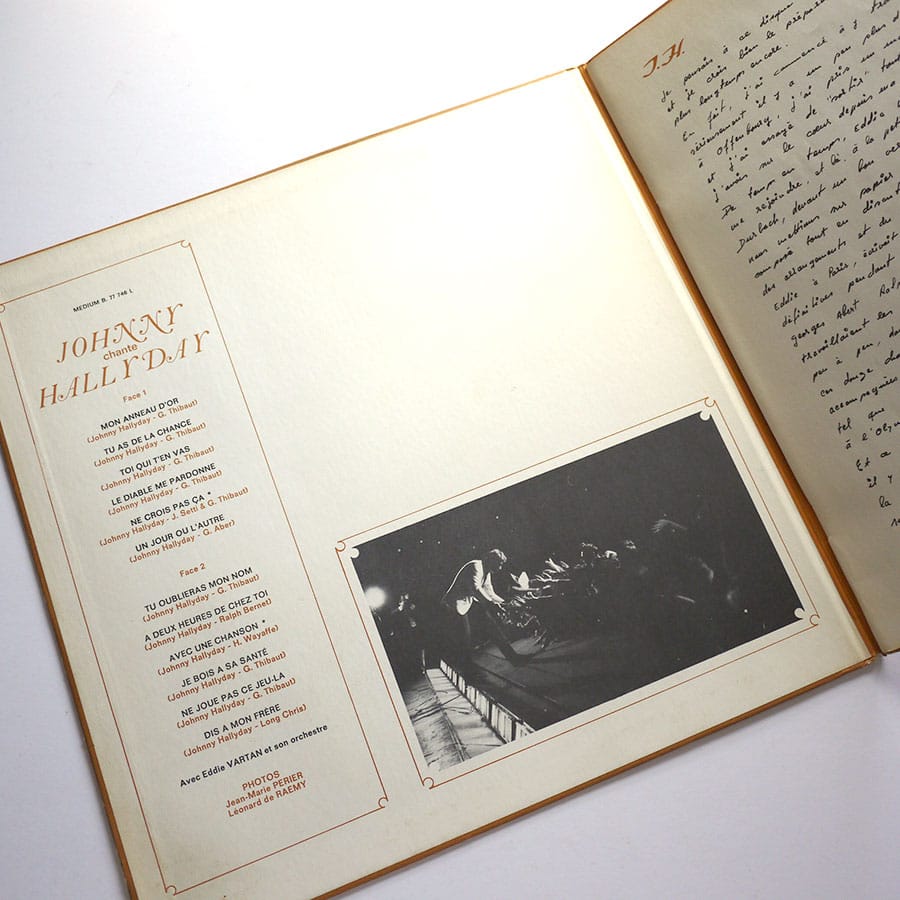 MEDIUM B. 77 746 L
JOHNNY
chante
HALLYDAY
Face 1
MON ANNEAU D'OR
(Johnny Hallyday - G. Thibaut)
TU AS DE LA CHANCE
(Johnny Hallyday - G. Thibaut)
TOI QUI T'EN VAS
(Johnny Hallyday - G. Thibaut)
LE DIABLE ME PARDONNE
(Johnny Hallyday - G. Thibaut)
NE CROIS PAS ÇA *
(Johnny Hallyday - J. Setti & G. Thibaut)
UN JOUR OU L'AUTRE
(Johnny Hallyday - G. Aber)
Face 2
TU OUBLIERAS MON NOM
(Johnny Hallyday - G. Thibaut)
A DEUX HEURES DE CHEZ TOI
(Johnny Hallyday - Ralph Bernet)
AVEC UNE CHANSON *
(Johnny Hallyday - H. Wayaffe)
JE BOIS A SA SANTÉ
(Johnny Hallyday - G. Thibaut)
NE JOUE PAS CE JEU-LA
(Johnny Hallyday - G. Thibaut)
DIS A MON FRÈRE
(Johnny Hallyday - Long Chris)
Avec Eddie VARTAN et son orchestre
PHOTOS
Jean-Marie PERIER
Léonard de RAEMY
J.H.
Je pensais à ce disque
et je crois bien le
plus longtemps encore.
En fait, j'ai commencé à y
sérieusement il y a un peu plus
à Offenbourg, j'ai pris un
et j'ai essayé de "sortir"
j'avais sur le cœur depuis
De temps en temps, Eddie
me rejoindre, et là, à la
Durbach, devant un bon
nous mettions sur papier
composé tout en
des arrangements et du
Eddie à Paris, écrivait
définitives pendant
georges Abert
travaillaient les
peu à peu,
ces douze
accompagnées
tel que
à l'
Et
il y
la